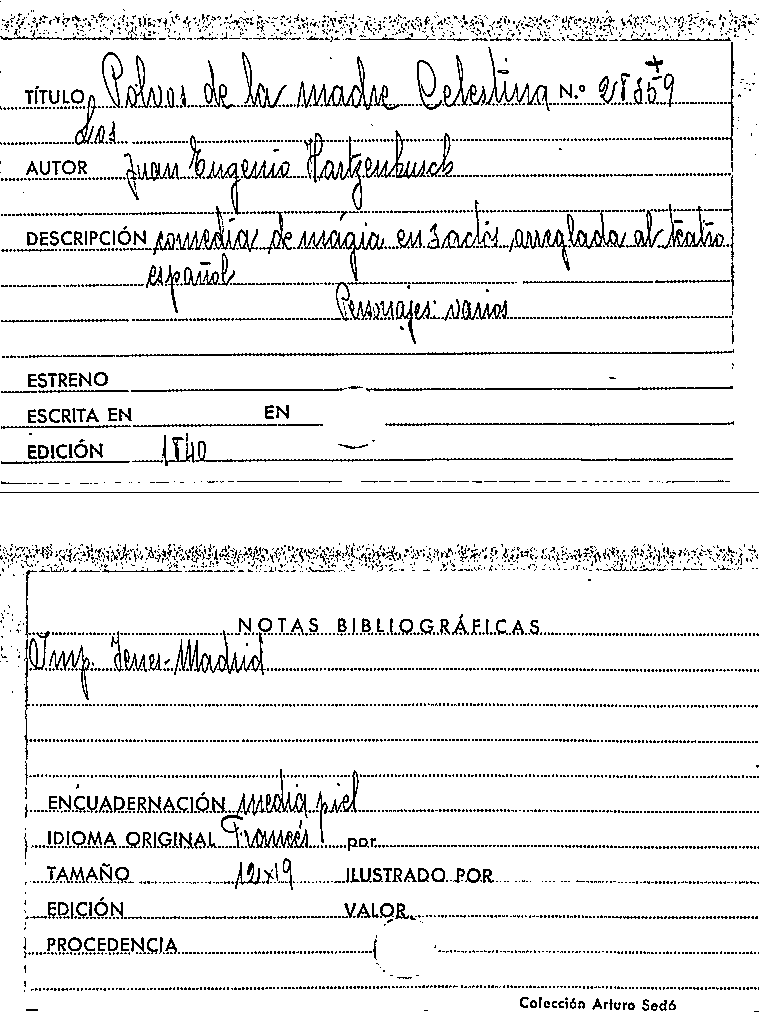 TÍTULO Polvos de la madre Celestina N.º 21859
Los
AUTOR Juan Eugenio Hartzenbusch
DESCRIPCIÓN comedia de mágia en 3 actos arreglada al teatro
español
Personajes: varios
ESTRENO
ESCRITA EN EN
EDICIÓN 1840
NOTAS BIBLIOGRÁFICAS
Imp. Yenes - Madrid
ENCUADERNACIÓN media piel
IDIOMA ORIGINAL Francés por
TAMAÑO 12x19 ILUSTRADO POR
EDICIÓN VALOR
PROCEDENCIA
Colección Arturo Sedó